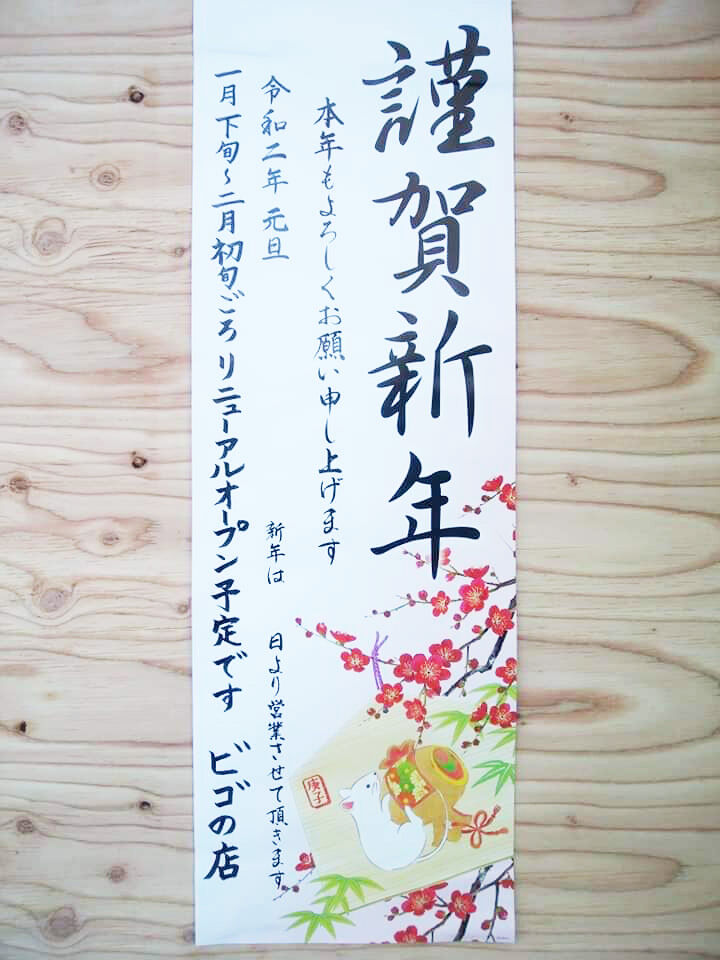 謹賀新年
本年もよろしくお願い申し上げます
令和二年 元旦
新年は 日より営業させて頂きます
一月下旬~二月初旬ごろ リニューアルオープン予定です ビゴの店
庚子